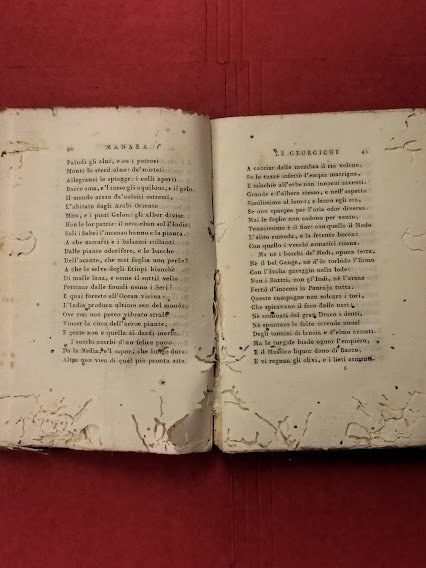 40 MANARA
Paludi gli alni, e su i petrosi
Monti lo steril olno: de' mirteti
Allegransi le spiagge: i colli aperti
Bacco ama, e 'l tasso gli aquiloni, e il gelo.
Il mondo arato da' coloni estremi,
L'abitato dagli Arabi Oriente
Mira, e i pinti Geloni: gli alber divise
Han le lor patrie: il nero ebun sol l'India;
Soli i Sabei l'incenso hanno e la pianta.
A che narrarti e i balsami stillanti
Dalle piante odorifere, e le bacche
Dell'acanto, che mai foglia non perde?
A che le selve degli Etiopi bianche
Di molle lana, e come il sottil vello
Pettinar dalle frondi usino i Seri?
E quai foreste all'Ocean vicina
L'India produce ultimo sen del mondo,
Ove mai non poteo vibrato strale
Vincer la cima dell'aeree piante,
E gente non è quella ai dardi inerte.
I succhi acerbi d'un felice pomo
Dà la Media, e 'l sapor, che lungo dura:
Altro non vien di quel più pronta aita
LE GEORGICHE 41
A cacciar dalle membra il rio veleno,
Se le tazze infettò l'empia matrigna,
E mischiò all'erbe non innocui accenti.
Grande è l'albero stesso, e nell'aspetto
Similissimo al lauro, e lauro egli era,
Se non spargea per l'aria odor diverso:
Mai le foglie non cadono per vento:
Tenacissimo è il fior: con quello il Medo
L'alito emenda, e la fetente bocca:
Con quello i vecchi asmatici risana.
Ma nè i boschi de' Medi, opima terra,
Nè il bel Gange, nè d'or torbido l'Ermo
Con l'Italia gareggin nella lode:
Non i Battri, non gl'Indi, nè l'areno
Fertil d'incensi la Pancaja tutta.
Queste campagne non solcaro i tori,
Che spiravano il foco dalle nari
Nè seminati del gran Draco i denti,
Nè spuntaro le folte orrende messi
Degli uomini di lancia e d'elmo armati.
Ma le turgide biade ognor l'empiero,
E il Massico liquor dono di Bacco,
E vi regnan gli olivi, e i lieti armenti.
6